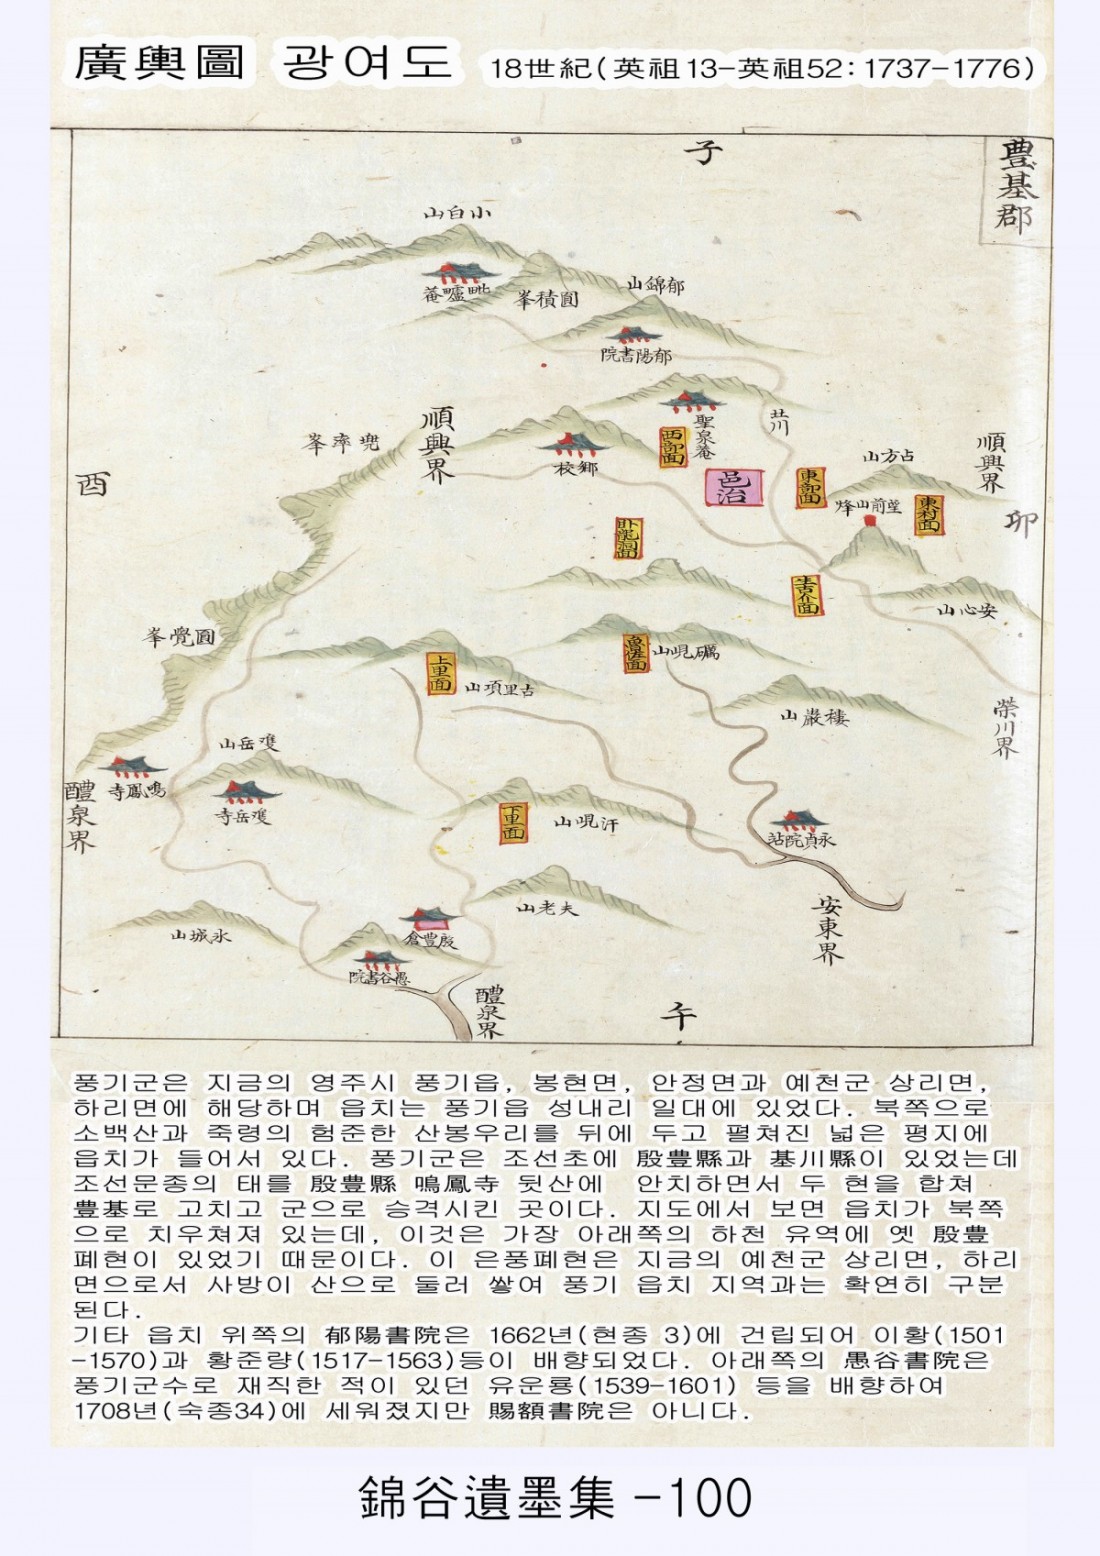 廣輿圖 광여도 18世紀(英祖13-英祖52:1737-1776)
子
豊基郡
山白小
菴盧毗
峯積圓
山錦郁
院書陽郁
順興界
峯率兜
校鄕
聖泉菴
西部面
邑治
東部面
山方占
烽山前望
東村面
順興界
卯
酉
臥龍洞面
生古介面
山心安
峯覺圓
魯佐面
山峴礪
上里面
山項里古
山巖棲
榮川界
山岳䧺
寺鳳鳴
寺岳䧺
醴泉界
下里面
山峴汗
站院貞永
安東界
山老夫
山城氷
倉豊殷
院書谷愚
醴泉界
午
풍기군은 지금의 영주시 풍기읍, 봉현면, 안정면과 예천군 상리면,
하리면에 해당하며 읍치는 풍기읍 성내리 일대에 있었다. 북쪽으로
소백산과 죽령의 험준한 산봉우리를 뒤에 두고 펼쳐진 넓은 평지에
읍치가 들어서 있다. 풍기군은 조선초에 殷豊縣과 基川縣이 있었는데
조선문종의 태를 殷豊縣 鳴鳳寺 뒷산에 안치하면서 두 현을 합쳐
豊基로 고치고 군으로 승격시킨 곳이다. 지도에서 보면 읍치가 북쪽
으로 치우쳐져 있는데, 이것은 가장 아래쪽의 하천 유역에 옛 殷豊
폐현이 있었기 때문이다. 이 은풍폐현은 지금의 예천군 상리면, 하리
면으로서 사방이 산으로 둘러 쌓여 풍기 읍치 지역과는 확연히 구분
된다.
기타 읍치 위쪽의 郁陽書院은 1662년(현종 3)에 건립되어 이황(1501
-1570)과 황준량(1517-1563)등이 배향되었다. 아래쪽의 愚谷書院은
풍기군수로 재직한 적이 있던 유운룡(1539-1601) 등을 배향하여
1708년(숙종34)에 세워졌지만 賜額書院은 아니다.
錦谷遺墨集 -100